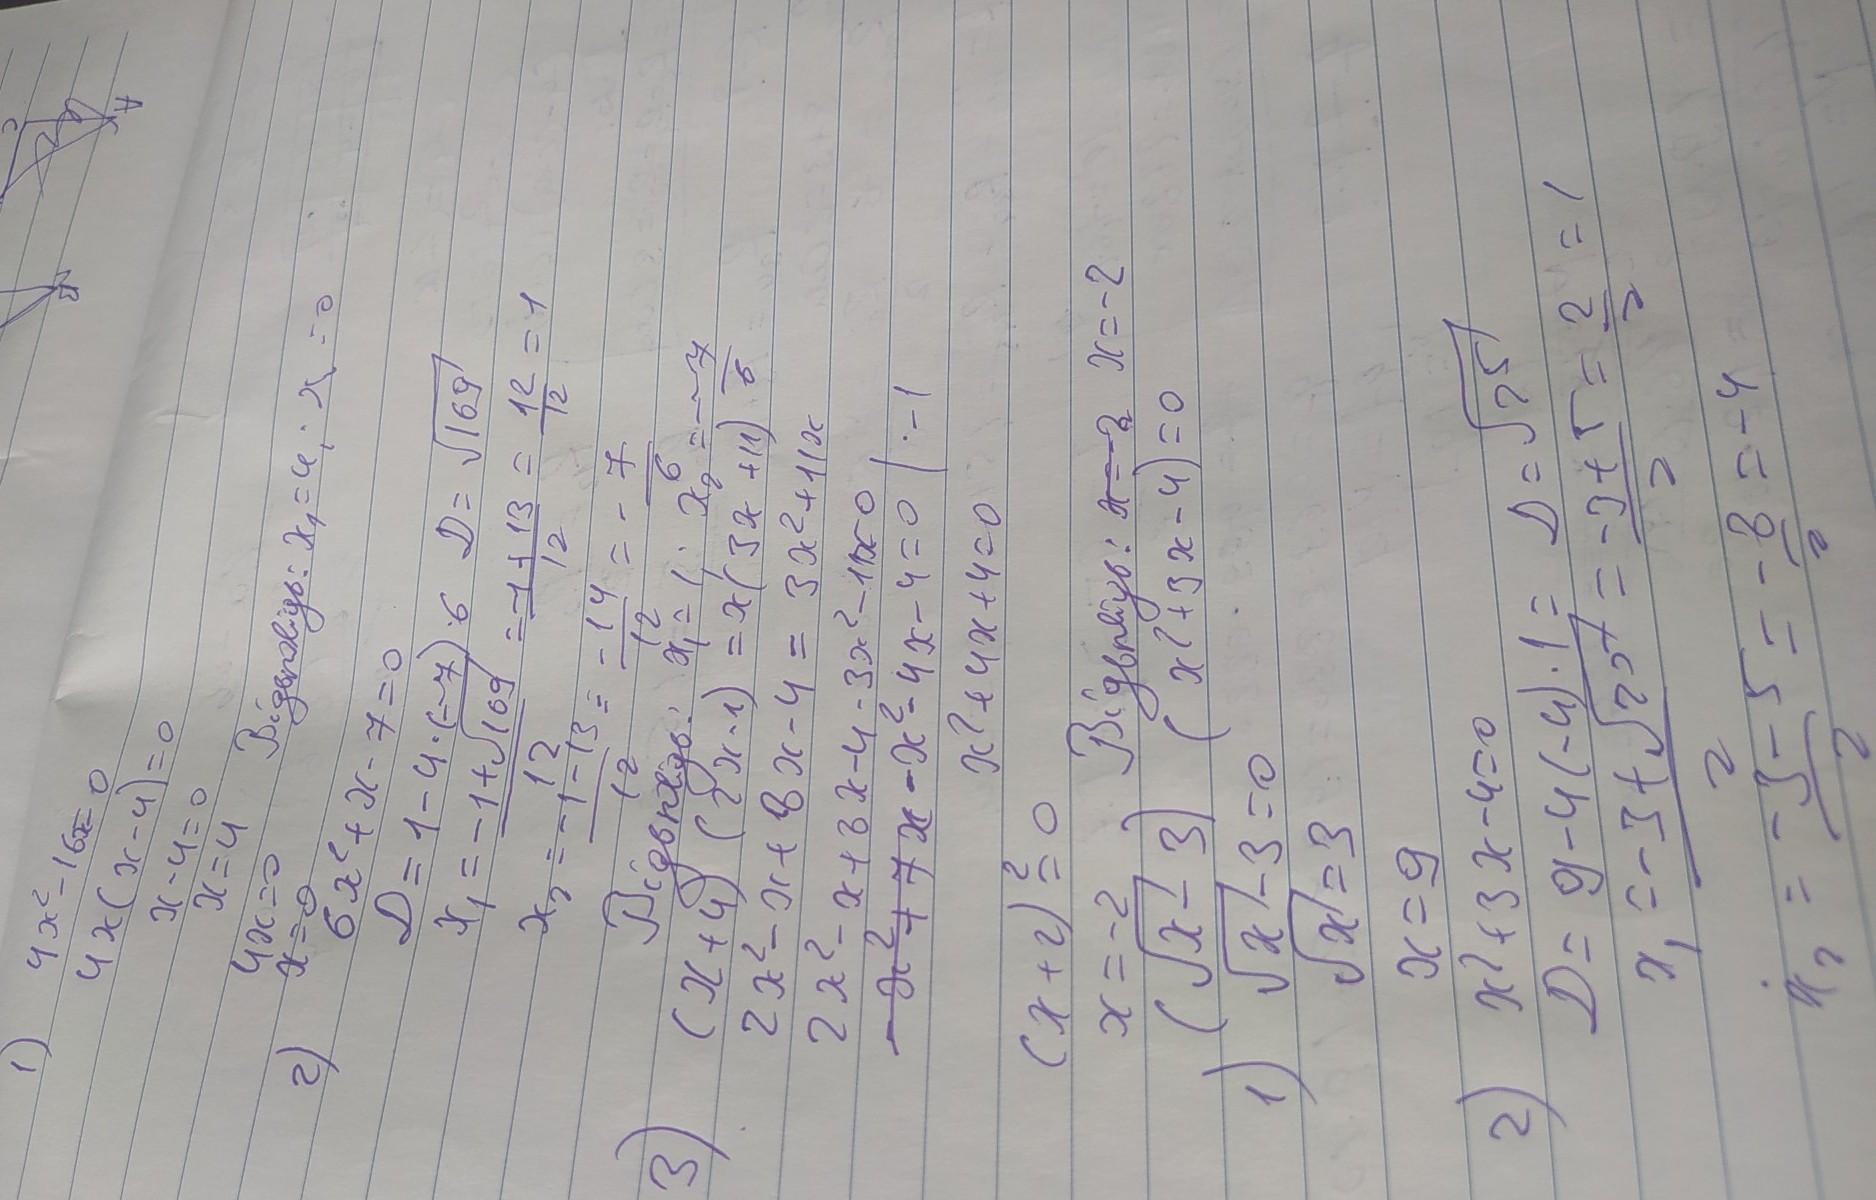 1) 4x² - 16x = 0
4x(x - 4) = 0
x - 4 = 0
x = 4
4x = 0 Відповідь: x₁ = 4; x = 0
x = 0
2) 6x² + x - 7 = 0
D = 1 - 4 · (-7) · 6 D = √169
x₁ = (-1 + √169)/12 = (-1 + 13)/12 = 12/12 = 1
x₂ = (-1 - 13)/12 = -14/12 = -7/6
Відповідь: x₁ = 1; x₂ = -7/6
3) (x + 4)(2x - 1) = x(3x + 11)
2x² - x + 8x - 4 = 3x² + 11x
2x² - x + 8x - 4 - 3x² - 11x = 0
-x² + 7x -x² - 4x - 4 = 0 | · -1
x² + 4x + 4 = 0
(x + 2)² = 0
x = -2 Відповідь: x = -2 x = -2
(√x - 3)(x² + 3x - 4) = 0
1) √x - 3 = 0
√x = 3
x = 9
2) x² + 3x - 4 = 0
D = 9 - 4(-4) · 1 = D = √25
x₁ = (-3 + √25)/2 = (-3 + 5)/2 = 2/2 = 1
x₂ = (-3 - 5)/2 = -8/2 = -4